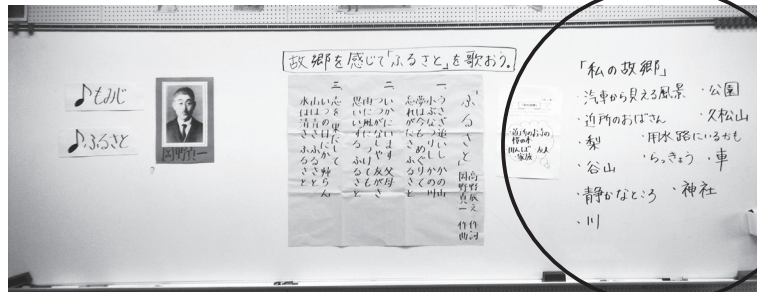 故郷を感じて「ふるさと」を歌おう。
♪もみじ
♪ふるさと
岡野貞一
「ふるさと」
高野辰之 作詞
岡野貞一 作曲
一、
うさぎ追いし かの山
小ぶなつりし かの川
夢は今も めぐりて
忘れがたき ふるさと
二、
いかにいます 父母
つつがなしや 友がき
雨に風に つけても
思いいずる ふるさと
三、
志を 果たして
いつの日にか 帰らん
山は青き ふるさと
水は清き ふるさと
家族
「私の故郷」
・汽車から見える風景 ・公園
・近所のおばさん ・久松山
・梨 ・用水路にいるかも
・谷山 ・らっきょう ・車
・静かなところ ・神社
・川